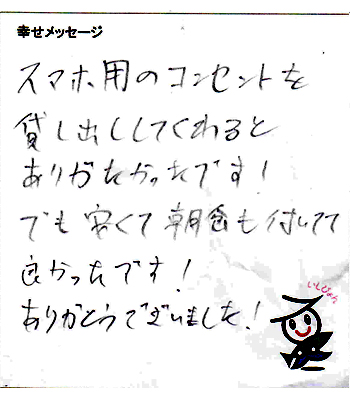 幸せメッセージ
スマホ用のコンセントを
貸し出ししてくれると
ありがたかったです!
でも安くて朝食も付いてて
良かったです!
ありがとうございました!
いしぴょん